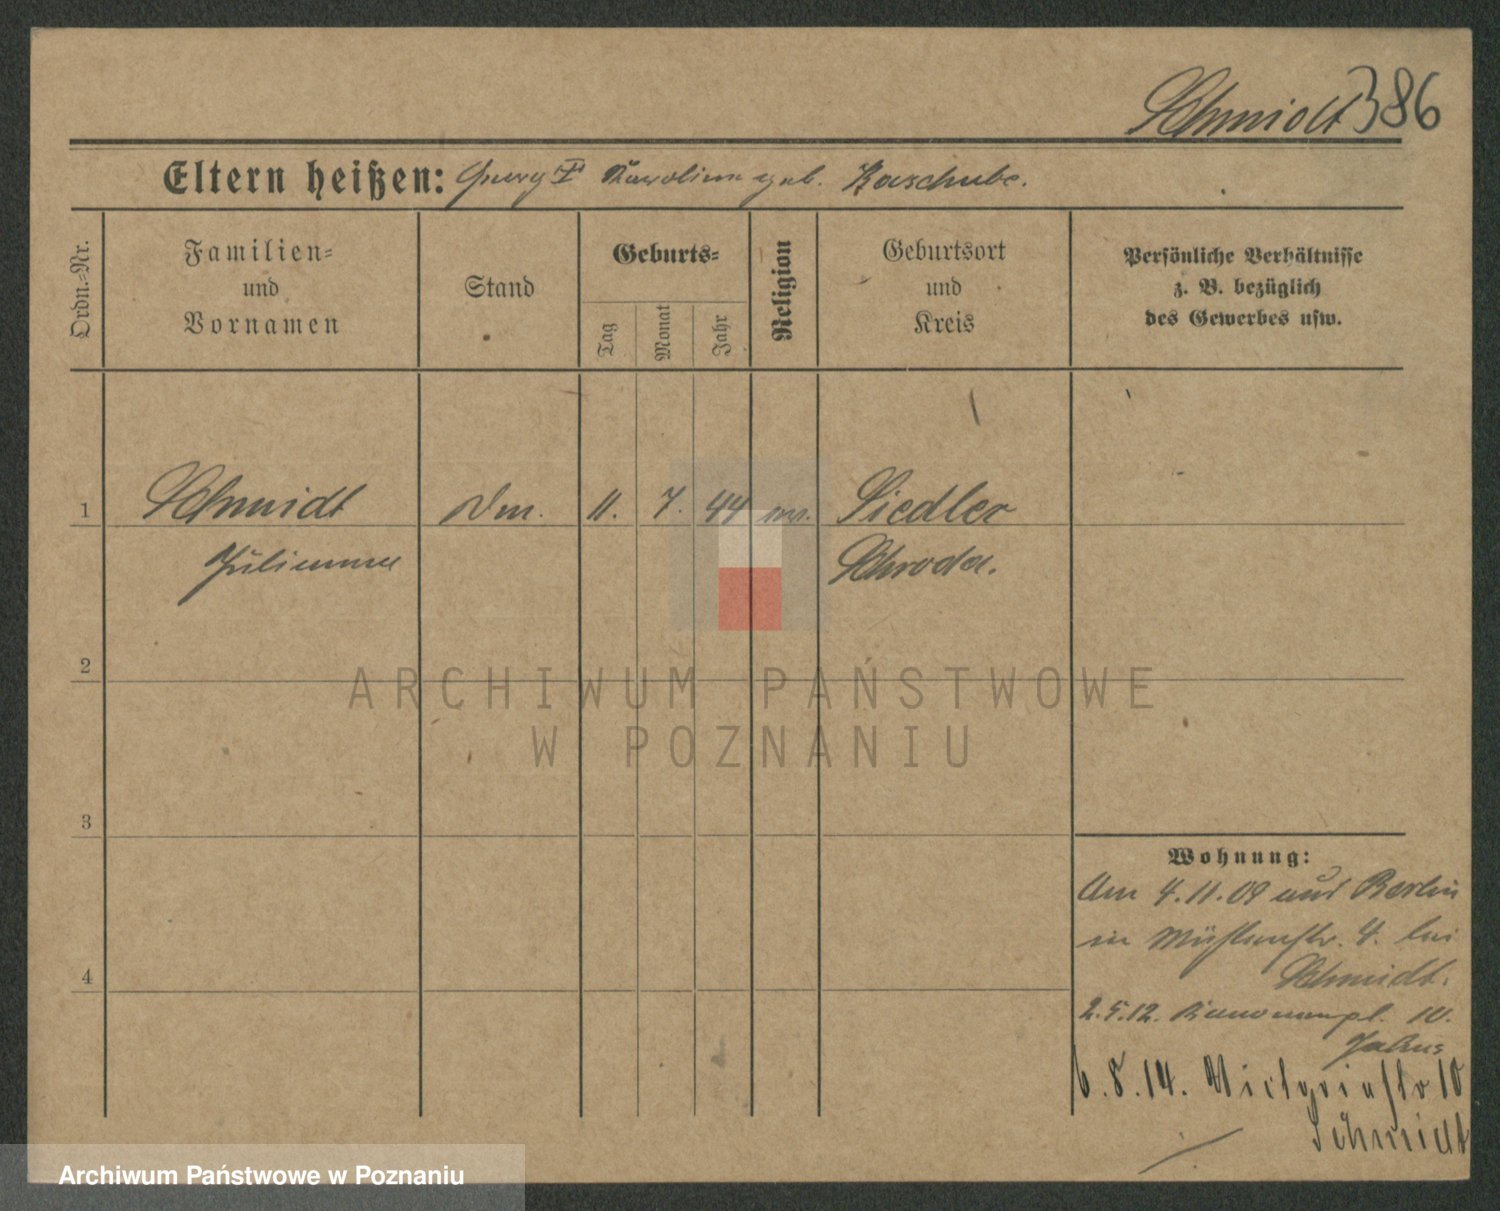 Schmidt 386
Eltern heißen: Georg u. Karoline geb. Kaschube.
Ordn.-Nr.
Familien-
und
Vornamen
Stand
Geburts-
Tag
Monat
Jahr
Religion
Geburtsort
und
Kreis
Persönliche Verhältnisse
z. B. bezüglich
des Gewerbes usw.
1
Schmidt
11. 7. 44
Siedler
Julianna
Schroda.
2
ARCHIWUM PAŃSTWOWE
W POZNANIU
3
Wohnung:
Am 4.11.09 aus Berlin
in Mühlenstr. 4. bei
Schmidt.
4
2.5.12. 10.
6.8.14. Victoriastr 10
Schmidt
Archiwum Państwowe w Poznaniu